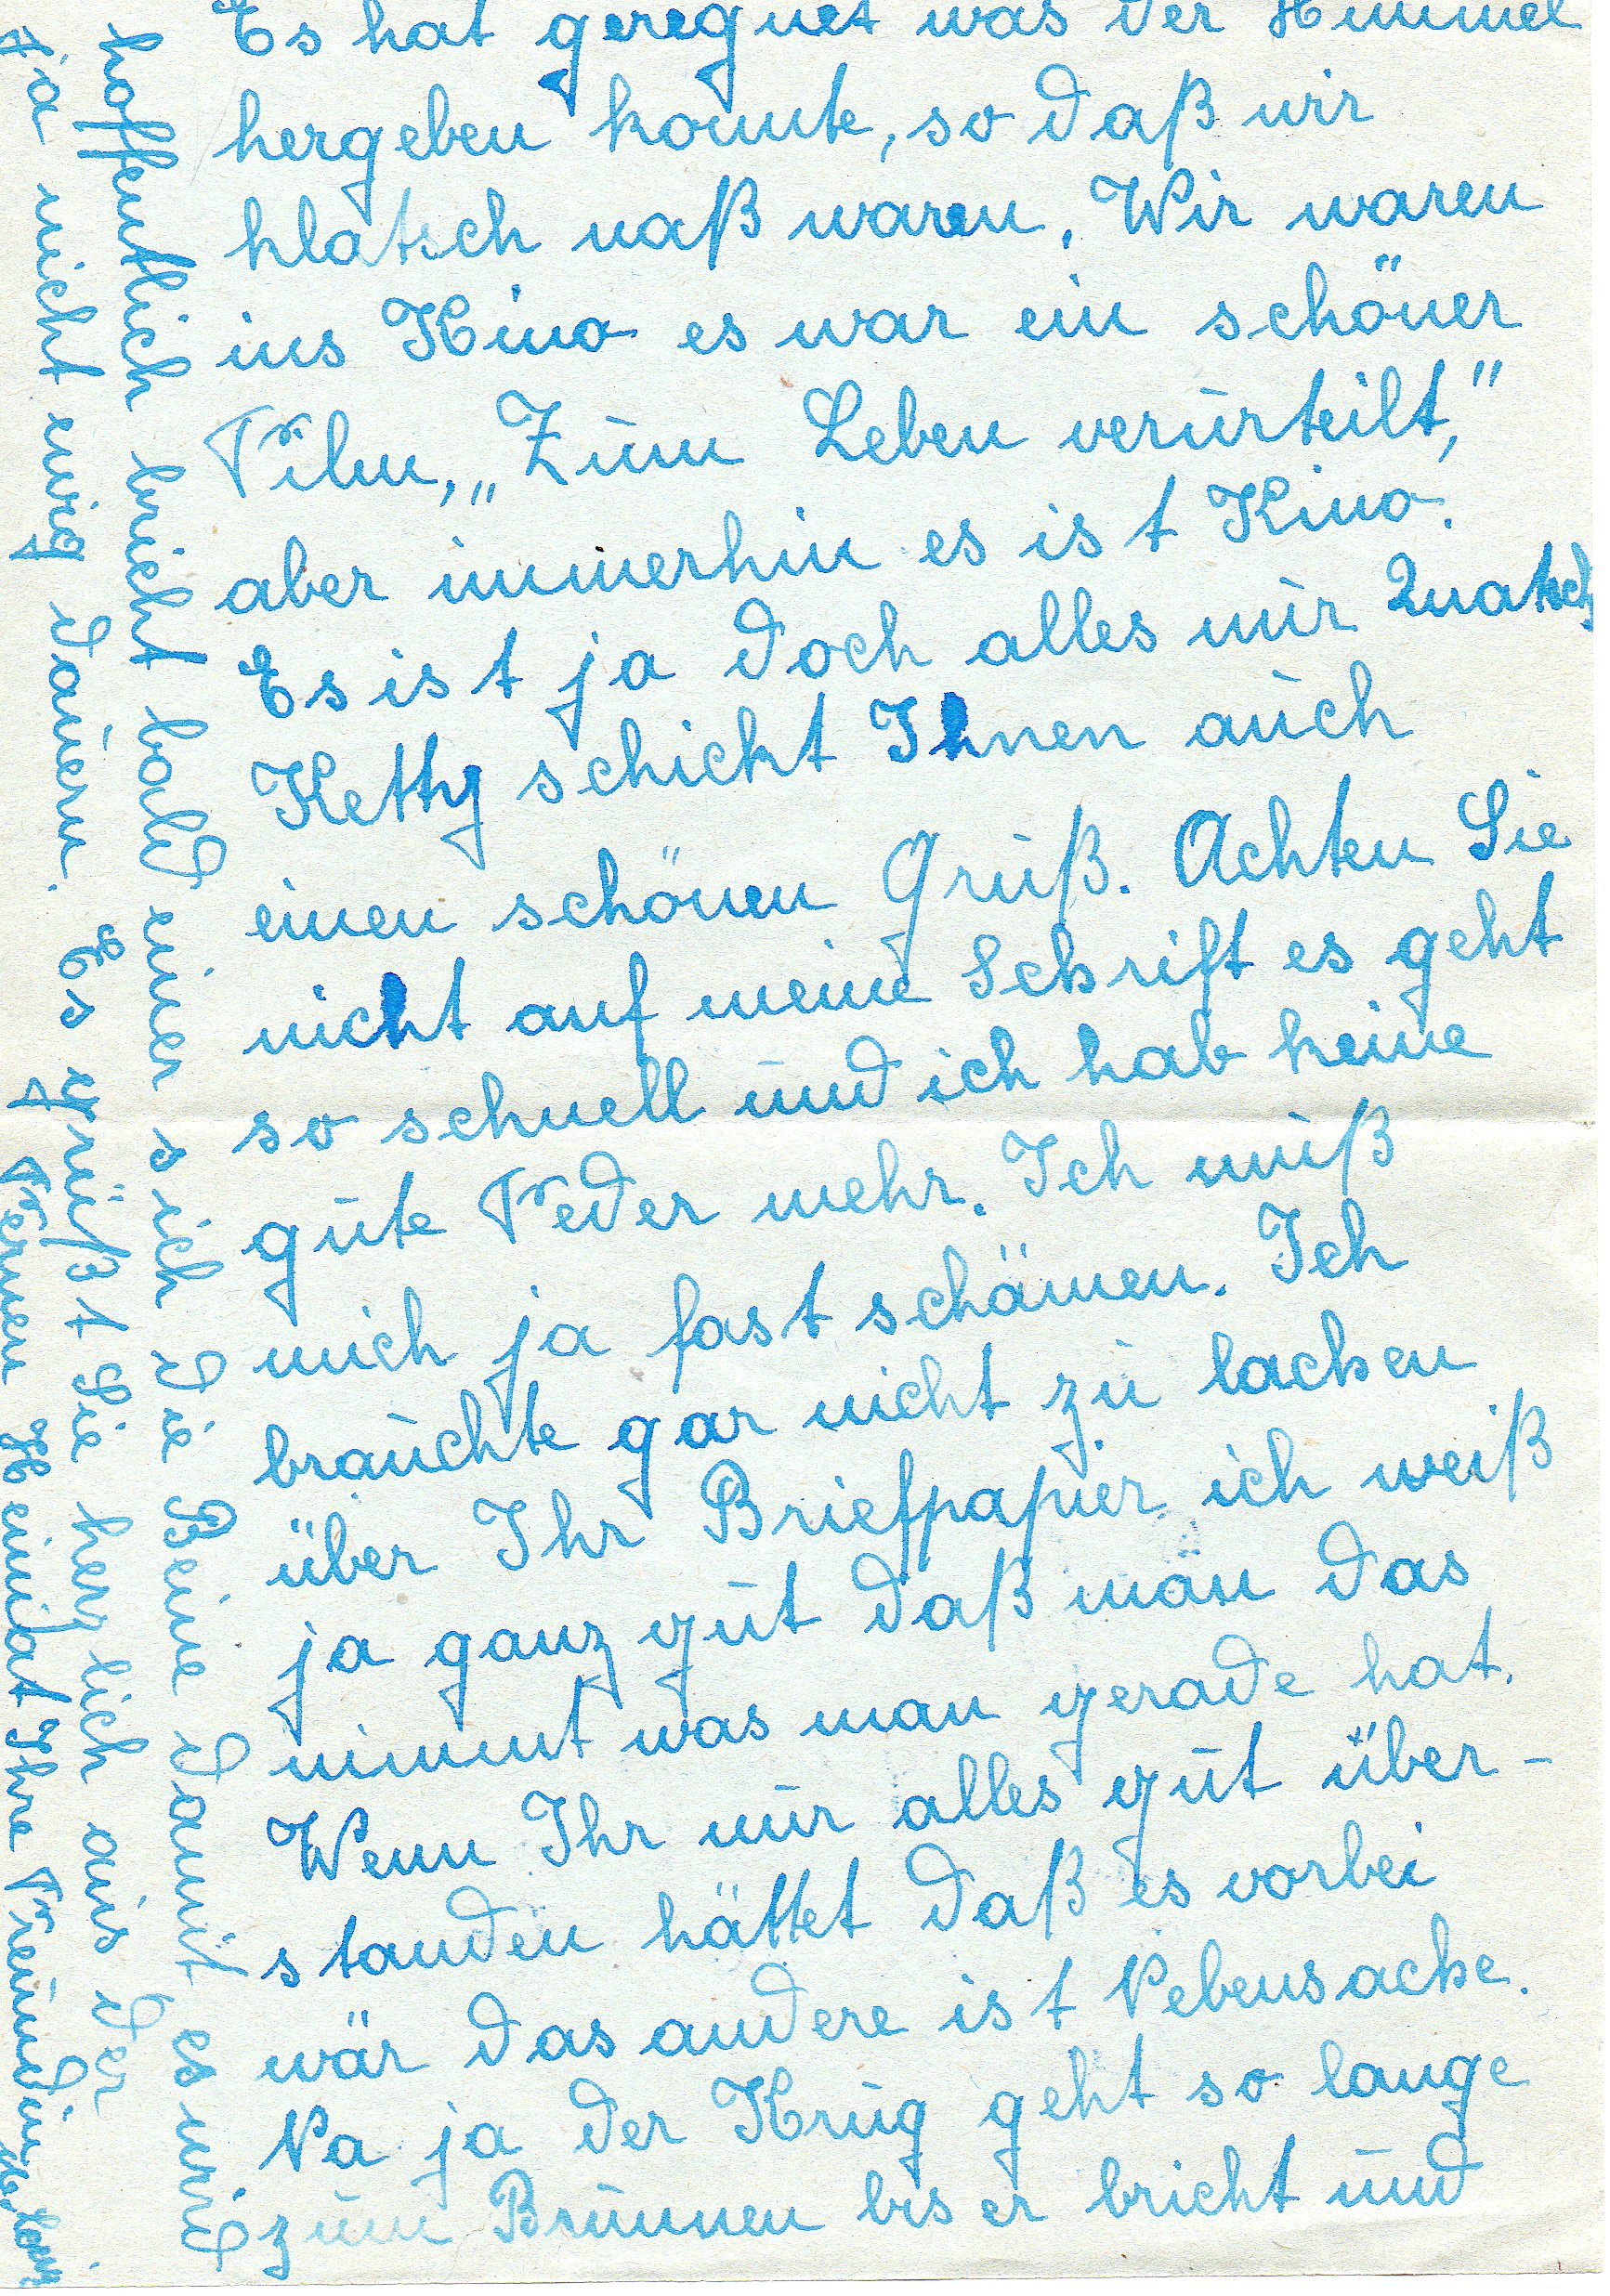 Es hat geregnet was der Himmel
hergeben konnte, so daß wir
klatsch naß waren. Wir waren
ins Kino es war ein schöner
Film, „Zum Leben verurteilt,"
aber immerhin es ist Kino.
Es ist ja doch alles nur Quatsch
Ketty schickt Ihnen auch
einen schönen Gruß. Achten Sie
nicht auf meine Schrift es geht
so schnell und ich hab keine
gute Feder mehr. Ich muß
mich ja fast schämen. Ich
brauchte gar nicht zu lachen
über Ihr Briefpapier ich weiß
ja ganz gut daß man das
nimmt was man gerade hat.
Wenn Ihr nur alles gut über-
standen hättet daß es vorbei
wär das andere ist Nebensache.
Na ja der Krug geht so lange
zum Brunnen bis er bricht und
hoffentlich bricht bald einer sich die Beine damit es wird
ja nicht ewig dauern. Es grüßt Sie herzlich aus der
fernen Heimat Ihre Freundin